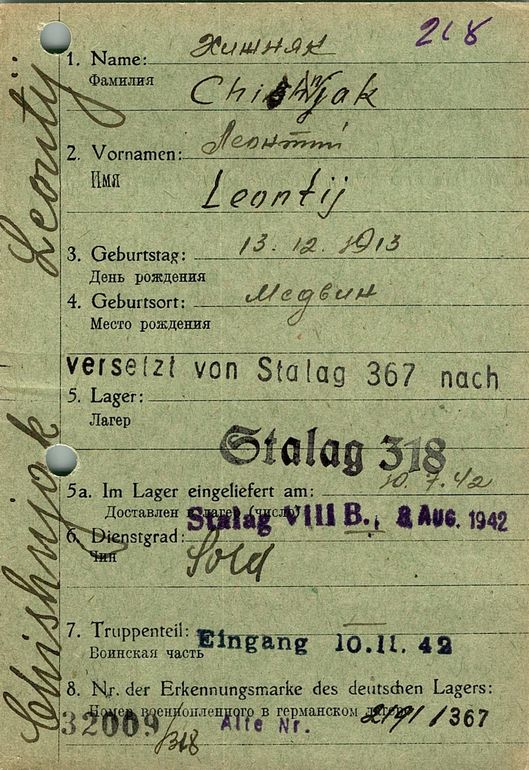 218
1. Name: Хижняк
Фамилия
Chishnjak
2. Vornamen: Леонтий
Имя
Leontij
3. Geburtstag: 13. 12. 1913
День рождения
4. Geburtsort: Медвин
Место рождения
versetzt von Stalag 367 nach
5. Lager:
Лагер
Stalag 318
10.7.42
5a. Im Lager eingeliefert am:
Доставлен в лагер (число)
Stalag VIII B., 8 AUG. 1942
6. Dienstgrad: Sold
Чин
7. Truppenteil:
Воинская часть
Eingang 10.11.42
8. Nr. der Erkennungsmarke des deutschen Lagers:
Номер военнопленного в германском лагере
32009/318 Alte Nr. /367
Chishnjak Leontij